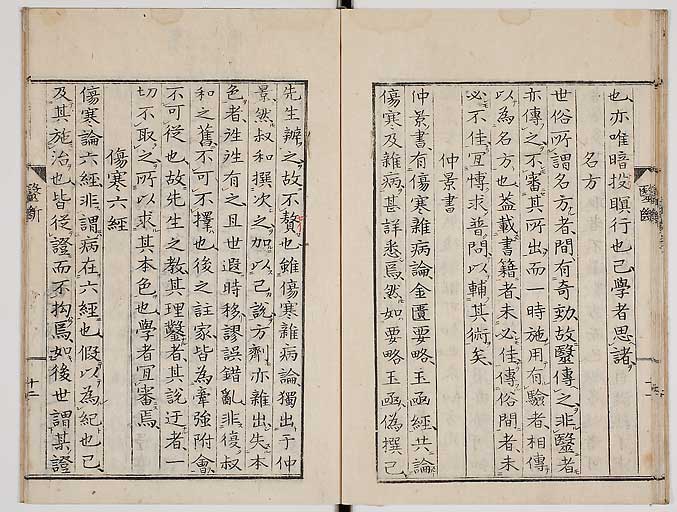 也亦唯暗投瞑行也已學者思諸
名方
世俗所謂名方者間有奇効故毉傳之非毉者
亦傳之不審其所出而一時施用有驗者相傳
以為名方也蓋載書籍者未必佳傳俗間者未
必不佳宜博求普問以輔其術矣
仲景書
仲景書有傷寒雜病論金匱要略玉函經共論
傷寒及雜病甚詳悉焉然如要略玉函偽撰已
毉斷
十一
先生辨之故不贅也雖傷寒雜病論獨出于仲
景然叔和撰次之加以己說方劑亦雜出失本
色者往往有之且世遐時移謬誤錯亂非復叔
和之舊不可不擇也後之註家皆為牽強附會
不可從也故先生之教其理鑿者其說迂者一
切不取之所以求其本色也學者宜審焉
傷寒六經
傷寒論六經非謂病在六經也假以為紀也已
及其施治也皆從證而不拘焉如後世謂某證
毉斷
十二